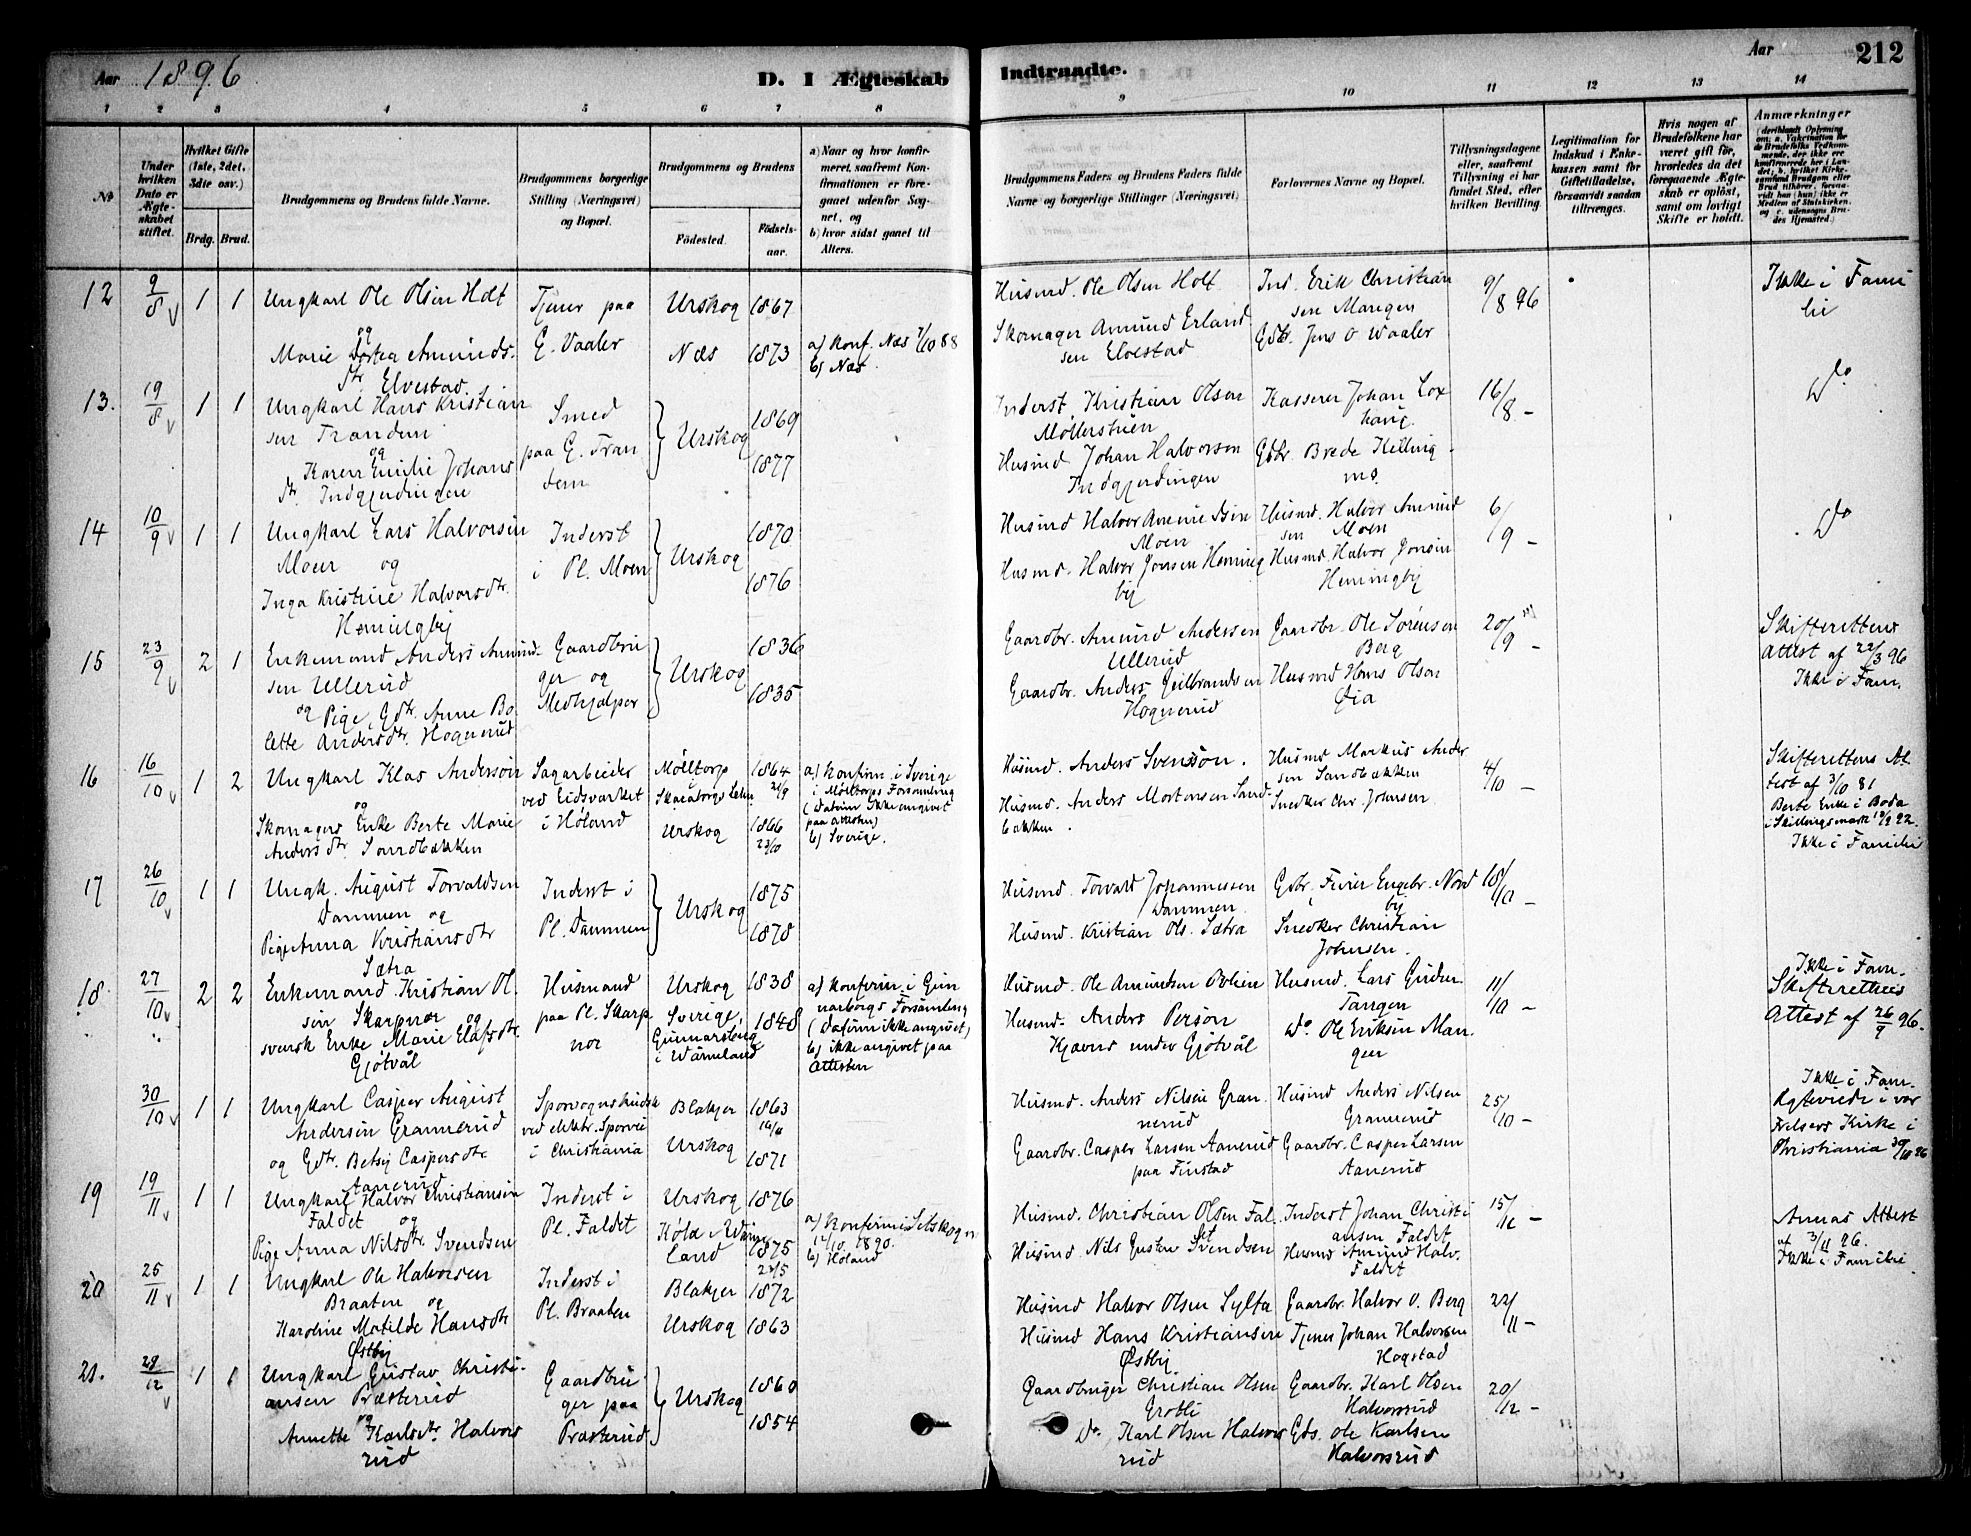 Aar 1896
D. 1 Ægteskab
Indtraadte.
Aar
212
1 2 3 4 5 6 7 8 9 10 11 12 13 14
№
Under hvilken Dato er Ægteskabet stiftet.
Hvilket Gifte (1ste, 2det, 3die osv.)
Brdg. Brud.
Brudgommens og Brudens fulde Navne.
Brudgommens borgerlige Stilling (Næringsvei) og Bopæl.
Brudgommens og Brudens
Födested.
Födselsaar.
a) Naar og hvor konfirmeret, saafremt Konfirmationen er foregaaet udenfor Sognet, og
b) hvor sidst gaaet til Alters.
Brudgommens Faders og Brudens Faders fulde Navne og borgerlige Stillinger (Næringsvei)
Forlovernes Navne og Bopæl.
Tillysningsdagene eller, saafremt Tillysning ei har fundet Sted, efter hvilken Bevilling.
Legitimation for Indskud i Enkekassen samt for Giftetilladelse, forsaavidt saadan tiltrænges.
Hvis nogen af Brudefolkene har været gift för, hvorledes da det foregaaende Ægteskab er oplöst, samt om lovligt Skifte er holdt.
Anmærkninger
12 9/8 1 1 Ungkarl Ole Olsen Holt
og
Marie Dortea Amunds.
dtr. Elvestad.
Tjener paa
G. Vaaler
Urskog 1867
Næs 1873
a) Konf. Næs 7/10 88
b) Næs.
Husmd. Ole Olsen Holt
Skomager Amund Erland
sen Elvestad
Ins. Erik Christian
sen Mangen
Gdbr. Jens O Waaler
9/8 96
Ikke i Fami
lie
13. 19/8 1 1 Ungkarl Hans Kristian
sen Trandem
og
Karen Emilie Johans
dtr. Indgjerdingen
Smed
paa G. Tran
dem
Urskog 1869
1877
Inderst Kristian Olsen
Möllerstuen
Husmd Johan Halvorsen
Indgjerdingen
Kasserer Johan Lox
haug.
Gdbr. Brede Killing
mo
16/8 –
Do
14 10/9 1 1 Ungkarl Lars Halvorsen
Moen og
Inga Kristine Halvorsdtr.
Hemingby
Inderst
i Pl. Moen
Urskog 1870
1876
Husmd Halvor Amundsen
Moen
Husmd. Halvor Jonsen Heming
by
Husmd. Halvor Amund
sen Moen
Husmd. Halvor Jonsen
Hemingby
6/9 –
Do
15 23/9 2 1 Enkemand Anders Amund
sen Ullerud
og Pige, Gdtr. Anne Bo
lette Andersdtr. Hognerud
Gaardbru
ger og
Medhjælper
Urskog 1836
1835
Gaardbr. Amund Andersen
Ullerud
Gaardbr. Anders Gulbrandsen
Hognerud
Gaardbr. Ole Sørensen
Berg
Husmd Hans Olsen
Øia
20/9 –
Skifterettens
Attest af 22/3 96
Ikke i Fam.
16 16/10 1 2 Ungkarl Klas Andersson
og
Skomagers Enke Berte Marie
Andersdtr. Sandbækken
Sagarbeider
ved Eidsverket
i Høland
Mölltorp
Skaraborgs Lehn
Urskog
1864
21/9
1866
23/10
a) Konfirm i Sverige
i Möltorps Forsamling
(Datum ikke angivet
paa Attesten)
b) Sverige.
Husmd. Anders Svensson.
Husmd. Anders Mortensen Sand
bækken.
Husmd Markus Ander
sen Sandbækken
Snedker Chr. Johnsen
4/10 –
Skifterettens At
test af 3/10 81
Ikke i Familie
17 26/10 1 1 Ungk. August Torvaldsen
Dammen og
Pige Anna Kristiansdtr
Sætra
Inderst i
Pl. Dammen
Urskog 1875
1878
Husmd. Torvald Johannessen
Dammen
Husmd. Kristian Ols. Sætra
Gdbr. Engebr. Nord
by
Snedker Christian
Johnsen.
18/10 –
Ikke i Fam.
18. 27/10 2 2 Enkemand Kristian Ol.
sen Skarpnor og
svensk Enke Marie Olafsdtr.
Gjötvål
Husmand
paa Pl. Skarp
nor
Urskog 1838
Sverige, 1848
Gunnarskog
i Wärmland
a) Konfirm. i Gun
narborgs Forsamling
(Datum ikke angivet)
b) ikke angivet paa
Attesten
Husmd. Ole Amundsen
Husmd. Anders Person
under Gjötvål
Husmd. Lars
Tangen
Do Ole Eriksen Man.
gen
11/10 –
Skifterettens
Attest af 26/9 96.
30/10 1 1 Ungkarl Casper August
Andersen Grannerud
og Gdtr. Betsy Caspersdtr
Aanerud
Sporvognskudsk
ved elektr. Sporvei
i Christiania
Blakjer 1863
Urskog 1871
Husmd. Anders Nilsen Gran
nerud
Gaardbr. Casper Larsen Aanerud
paa Finstad
Husmd Anders Nilsen
Grannerud
Gaardbr. Casper Larsen
Aanerud
25/10 –
Ikke i Fam.
Ægteviede i vor
Frelsers Kirke i
Christiania 30/10 96
19 19/11 1 1 Ungkarl Halvor Christiansen
Faldet og
Pige Anna Nilsdtr. Svendsen
Inderst i
Pl. Faldet
Urskog 1876
Köla i Wärm
land 1875
23/5
a) Konfirm i Setskogn
12/10 1890.
b) Høland
Husmd. Christian Olsen Fal.
det
Husmd. Nils Gustav Svendsen
Inderst Johan Christi
ansen Faldet
Husmd Amund Halv.
Faldet
15/11 –
Annas Attest
af 3/11 96.
Ikke i Familie
20 25/11 1 1 Ungkarl Ole Halvorsen
Braaten og
Karoline Matilde Hansdtr
Østby
Inderst i
Pl. Braaten
Blakjer 1872
Urskog 1863
Husmd Halvor Olsen Sylta
Husmd Hans Kristiansen
Østby
Gaardbr. Halvor O. Berg
Tjener Johan Halvorsen
Hogstad
22/11 –
21. 29/12 1 1 Ungkarl Gustav Christi.
ansen Præsterud
og
Annette Karlsdtr. Halvors
rud
Gaardbru
ger paa
Præsterud
Urskog 1860
1854
Gaardbruger Christian Olsen
Grotli
Do. Karl Olsen Halvors
rud
Gaardbr. Karl Olsen
Halvorsrud
Gbs. Ole Karlsen
Halvorsrud
20/12 –